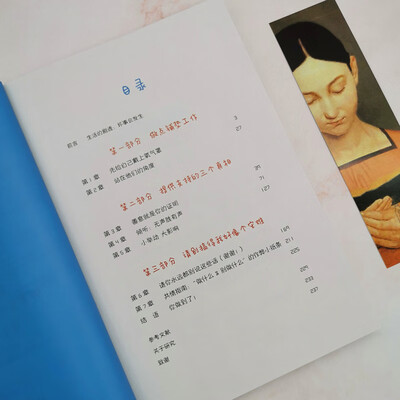 目录
前言 生活的颠簸，好事会发生
第一部分 做点铺垫工作 3
第 1 章 先给自己戴上氧气罩 27
第 2 章 站在他们的角度
第二部分 提供支持的三个真相 59
第 3 章 善意就是你的证明 71
第 4 章 倾听，无声胜有声 127
第 5 章 小举动 大影响
第三部分 请别搞得我好像个容嬷 169
第 6 章 请你永远都别说这些话（谢谢！） 211
第 7 章 共情指南：“做什么＆别做什么”的作弊小纸条 225
结 语 你做到了！ 233
参考文献 237
关于研究
致谢